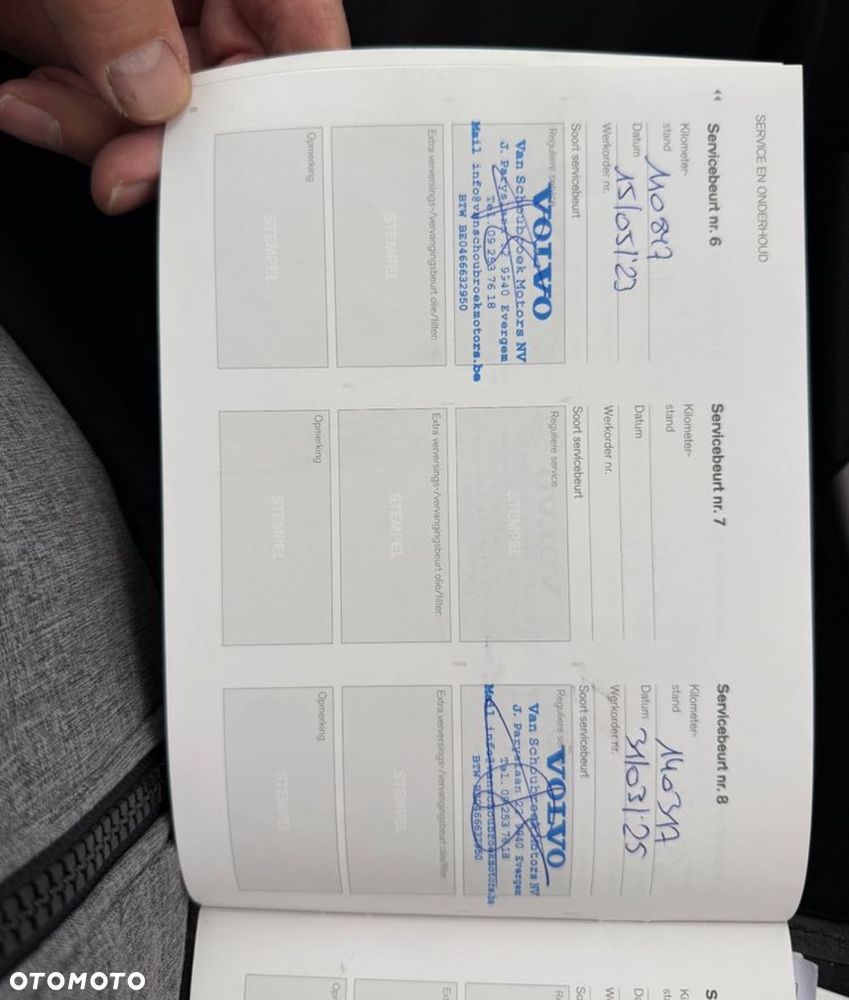 SERVICE EN ONDERHOUD
Servicebeurt nr. 6
Kilometer-
stand 110847
Datum 15/05/'23
Werkorder nr.
Soort servicebeurt
Reguliere service
VOLVO
Van Schoubroek Motors NV
9940 Evergem
Tel. 09 253 76 18
Mail info@vanschoubroekmotors.be
BTW BE0466632950
Extra verversings-/vervangingsbeurt olie/filter:
STEMPEL
Opmerking
STEMPEL
Servicebeurt nr. 7
Kilometer-
stand
Datum
Werkorder nr.
Soort servicebeurt
Reguliere service
STEMPEL
Extra verversings-/vervangingsbeurt olie/filter:
STEMPEL
Opmerking
STEMPEL
Servicebeurt nr. 8
Kilometer-
stand 140317
Datum 31/03/'25
Werkorder nr.
Soort servicebeurt
Reguliere
VOLVO
Van Schoubroek Motors NV
J. Paryslaan 9940 Evergem
Tel. 09 253 76 18
Mail info@vanschoubroekmotors.be
BTW BE0466632950
Extra verversings-/vervangingsbeurt olie/filter:
STEMPEL
Opmerking
STEMPEL
8
OTOMOTO